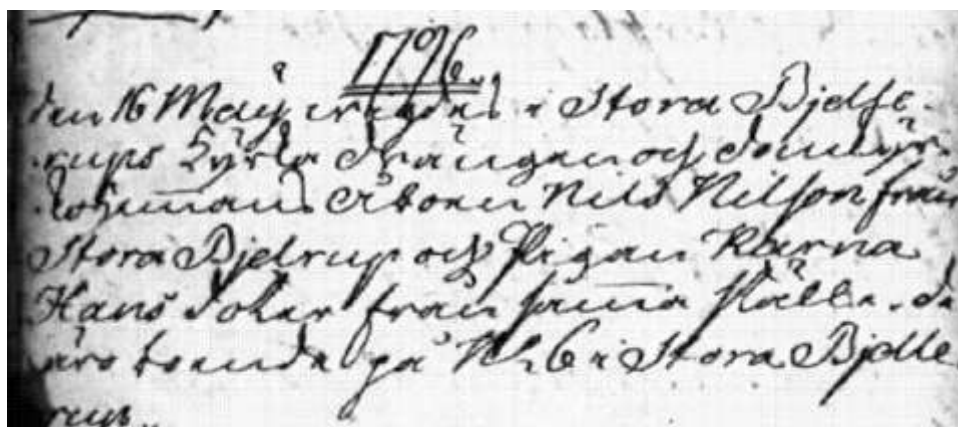 1796.
den 16 May wigdes i Stora Bjelfe-
rups Kyrka Drängen och
Åboen Nils Nilson från
Stora Bjelrup och Pigan Karna
Hans Doter från sama ställe. de
äro boende på N:6 i Stora Bjelle
rup.